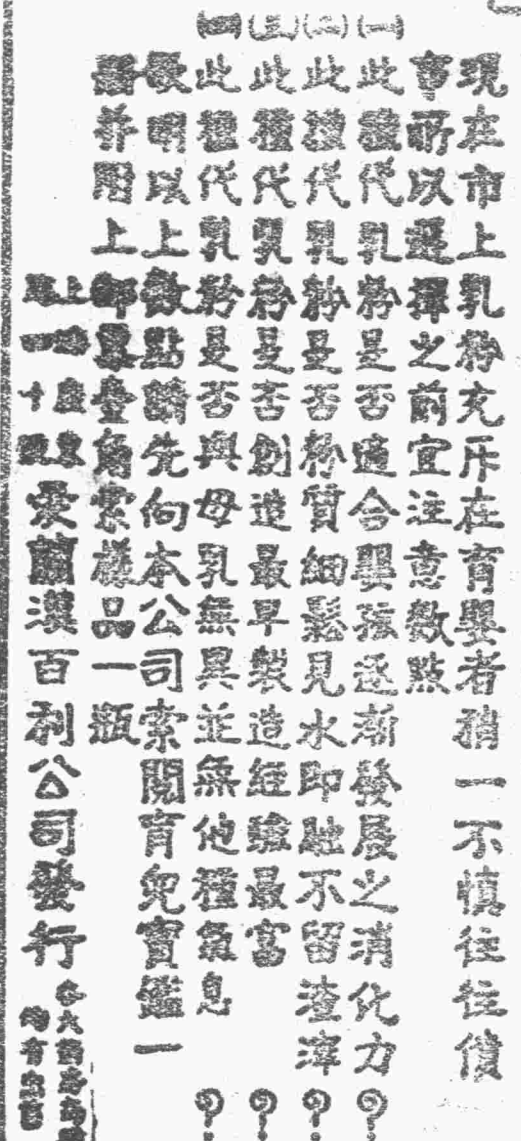 現在市上乳粉充斥在育嬰者稍一不慎往往僨
事所以選擇之前宜注意數點
(一)此種代乳粉是否適合嬰孩逐漸發展之消化力?
(二)此種代乳粉是否粉質細鬆見水即融不留渣滓?
(三)此種代乳粉是否創造最早製造經驗最富?
(四)此種代乳粉是否與母乳無異並無他種氣息?
欲明以上數點請先向本公司索閱育兒寶鑑一
冊并附上郵票壹角索樣品一瓶
上海
四十
愛蘭漢百利公司發行
各大藥房均有出售